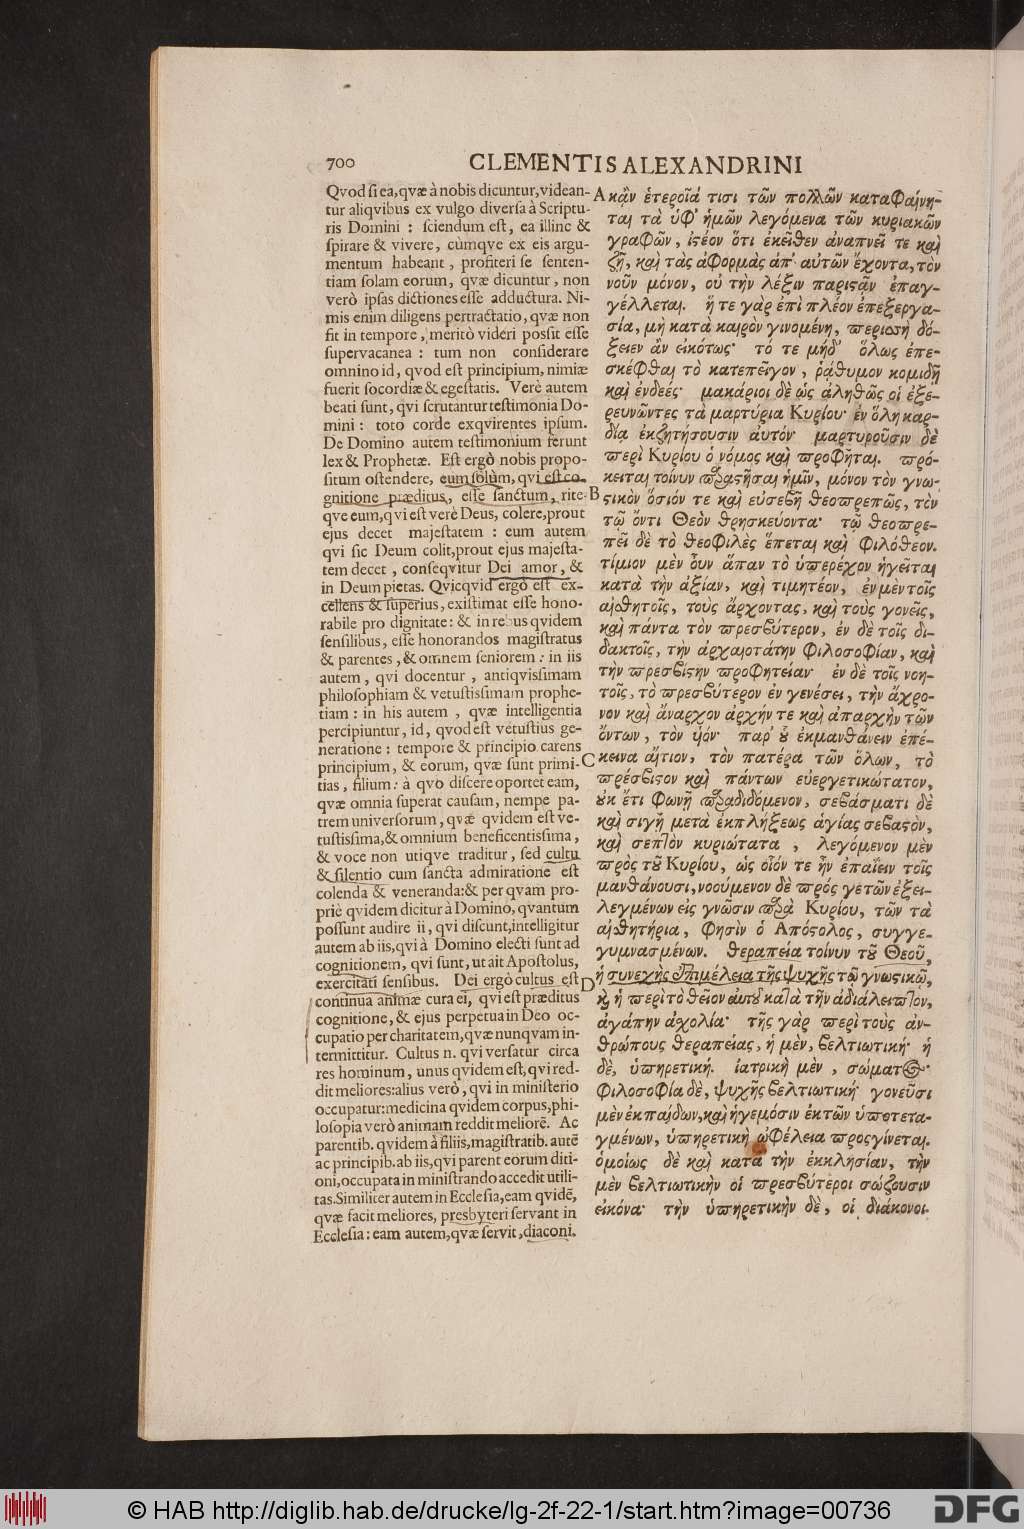 700
CLEMENTIS ALEXANDRINI
Qvod si ea, qvæ à nobis dicuntur, videan-
tur aliqvibus ex vulgo diversa à Scriptu-
ris Domini : sciendum est, ea illinc &
spirare & vivere, cùmqve ex eis argu-
mentum habeant , profiteri se senten-
tiam solam eorum, qvæ dicuntur, non
verò ipsas dictiones esse adductura. Ni-
mis enim diligens pertractatio, qvæ non
fit in tempore, meritò videri possit esse
supervacanea : tum non considerare
omnino id, qvod est principium, nimiæ
fuerit socordiæ & egestatis. Verè autem
beati sunt, qvi scrutantur testimonia Do-
mini : toto corde exqvirentes ipsum.
De Domino autem testimonium ferunt
lex & Prophetæ. Est ergò nobis propo-
situm ostendere, eum solùm, qvi est co-
gnitione præditus, esse sanctum, rite-
qve eum, qvi est verè Deus, colere, prout
ejus decet majestatem : eum autem
qvi sic Deum colit, prout ejus majesta-
tem decet , conseqvitur Dei amor, &
in Deum pietas. Qvicqvid ergò est ex-
cellens & superius, existimat esse hono-
rabile pro dignitate: & in rebus qvidem
sensilibus, esse honorandos magistratus
& parentes , & omnem seniorem : in iis
autem , qvi docentur , antiqvissimam
philosophiam & vetustissimam prophe-
tiam : in his autem , qvæ intelligentia
percipiuntur, id, qvod est vetustius ge-
neratione : tempore & principio carens
principium, & eorum, qvæ sunt primi-
tias, filium: à qvo discere oportet eam,
qvæ omnia superat causam, nempe pa-
trem universorum, qvæ qvidem est ve-
tustissima, & omnium beneficentissima ,
& voce non utiqve traditur, sed cultu
& silentio cum sancta admiratione est
colenda & veneranda: & per qvam pro-
priè qvidem dicitur à Domino, qvantum
possunt audire ii , qvi discunt, intelligitur
autem ab iis, qvi à Domino electi sunt ad
cognitionem, qvi sunt, ut ait Apostolus,
exercitati sensibus. Dei ergò cultus est
continua animæ cura ei, qvi est præditus
cognitione, & ejus perpetua in Deo oc-
cupatio per charitatem, qvæ nunqvam in-
termittitur. Cultus n. qvi versatur circa
res hominum, unus qvidem est, qvi red-
dit meliores: alius verò, qvi in ministerio
occupatur: medicina qvidem corpus, phi-
losopia verò animam reddit meliorē. Ac
parentib. qvidem à filiis, magistratib. autē
ac principib. ab iis, qvi parent eorum diti-
oni, occupata in ministrando accedit utili-
tas. Similiter autem in Ecclesia, eam qvidē,
qvæ facit meliores, presbyteri servant in
Ecclesia: eam autem, qvæ servit, diaconi.
A κἂν ἑτεροῖά τισι τῶν πολλῶν καταφαίνη-
ται τὰ ὑφ' ἡμῶν λεγόμενα τῶν κυριακῶν
γραφῶν, ἰστέον ὅτι ἐκεῖθεν ἀναπνεῖ τε καὶ
ζῇ, καὶ τὰς ἀφορμὰς ἀπ' αὐτῶν ἔχοντα, τὸν
νοῦν μόνον, οὐ τὴν λέξιν παριστᾷν ἐπαγ-
γέλλεται. ἥ τε γὰρ ἐπὶ πλέον ἐπεξεργα-
σία, μὴ κατὰ καιρὸν γινομένη, περισσὴ δό-
ξειεν ἂν εἰκότως· τό τε μηδ' ὅλως ἐπε-
σκέφθαι τὸ κατεπεῖγον , ῥάθυμον κομιδῇ
καὶ ἐνδεές· μακάριοι δὲ ὡς ἀληθῶς οἱ ἐξε-
ρευνῶντες τὰ μαρτύρια Κυρίου· ἐν ὅλῃ καρ-
δίᾳ ἐκζητήσουσιν αὐτόν· μαρτυροῦσιν δὲ
περὶ Κυρίου ὁ νόμος καὶ προφῆται. πρό-
κειται τοίνυν παραστῆσαι ἡμῖν, μόνον τὸν γνω-
B στικὸν ὅσιόν τε καὶ εὐσεβῆ θεοπρεπῶς, τὸν
τῷ ὄντι Θεὸν θρησκεύοντα· τῷ θεοπρε-
πεῖ δὲ τὸ θεοφιλὲς ἕπεται καὶ φιλόθεον.
τίμιον μὲν οὖν ἅπαν τὸ ὑπερέχον ἡγεῖται
κατὰ τὴν ἀξίαν, καὶ τιμητέον, ἐν μὲν τοῖς
αἰσθητοῖς, τοὺς ἄρχοντας, καὶ τοὺς γονεῖς,
καὶ πάντα τὸν πρεσβύτερον, ἐν δὲ τοῖς δι-
δακτοῖς, τὴν ἀρχαιοτάτην φιλοσοφίαν, καὶ
τὴν πρεσβίστην προφητείαν· ἐν δὲ τοῖς νοη-
τοῖς, τὸ πρεσβύτερον ἐν γενέσει, τὴν ἄχρο-
νον καὶ ἄναρχον ἀρχήν τε καὶ ἀπαρχὴν τῶν
ὄντων, τὸν υἱόν· παρ' οὗ ἐκμανθάνειν ἐπέ-
C κεινα αἴτιον, τὸν πατέρα τῶν ὅλων, τὸ
πρέσβιστον καὶ πάντων εὐεργετικώτατον,
οὐκ ἔτι φωνῇ παραδιδόμενον, σεβάσματι δὲ
καὶ σιγῇ μετὰ ἐκπλήξεως ἁγίας σεβαστὸν,
καὶ σεπτὸν κυριώτατα , λεγόμενον μὲν
πρὸς τοῦ Κυρίου, ὡς οἷόν τε ἦν ἐπαΐειν τοῖς
μανθάνουσι, νοούμενον δὲ πρός γε τῶν ἐξει-
λεγμένων εἰς γνῶσιν παρὰ Κυρίου, τῶν τὰ
αἰσθητήρια, φησὶν ὁ Ἀπόστολος, συγγε-
γυμνασμένων. θεραπεία τοίνυν τοῦ Θεοῦ,
D ἡ συνεχὴς ἐπιμέλεια τῆς ψυχῆς τῷ γνωστικῷ,
καὶ ἡ περὶ τὸ θεῖον αὐτοῦ κατὰ τὴν ἀδιάλειπτον,
ἀγάπην ἀσχολία· τῆς γὰρ περὶ τοὺς ἀν-
θρώπους θεραπείας, ἡ μὲν, βελτιωτική· ἡ
δὲ, ὑπηρετική. ἰατρικὴ μὲν , σώματος·
φιλοσοφία δὲ, ψυχῆς βελτιωτική· γονεῦσι
μὲν ἐκ παίδων, καὶ ἡγεμόσιν ἐκ τῶν ὑποτετα-
γμένων, ὑπηρετικὴ ὠφέλεια προσγίνεται.
ὁμοίως δὲ καὶ κατὰ τὴν ἐκκλησίαν, τὴν
μὲν βελτιωτικὴν οἱ πρεσβύτεροι σώζουσιν
εἰκόνα· τὴν ὑπηρετικὴν δὲ, οἱ διάκονοι.
© HAB http://diglib.hab.de/drucke/lg-2f-22-1/start.htm?image=00736
DFG